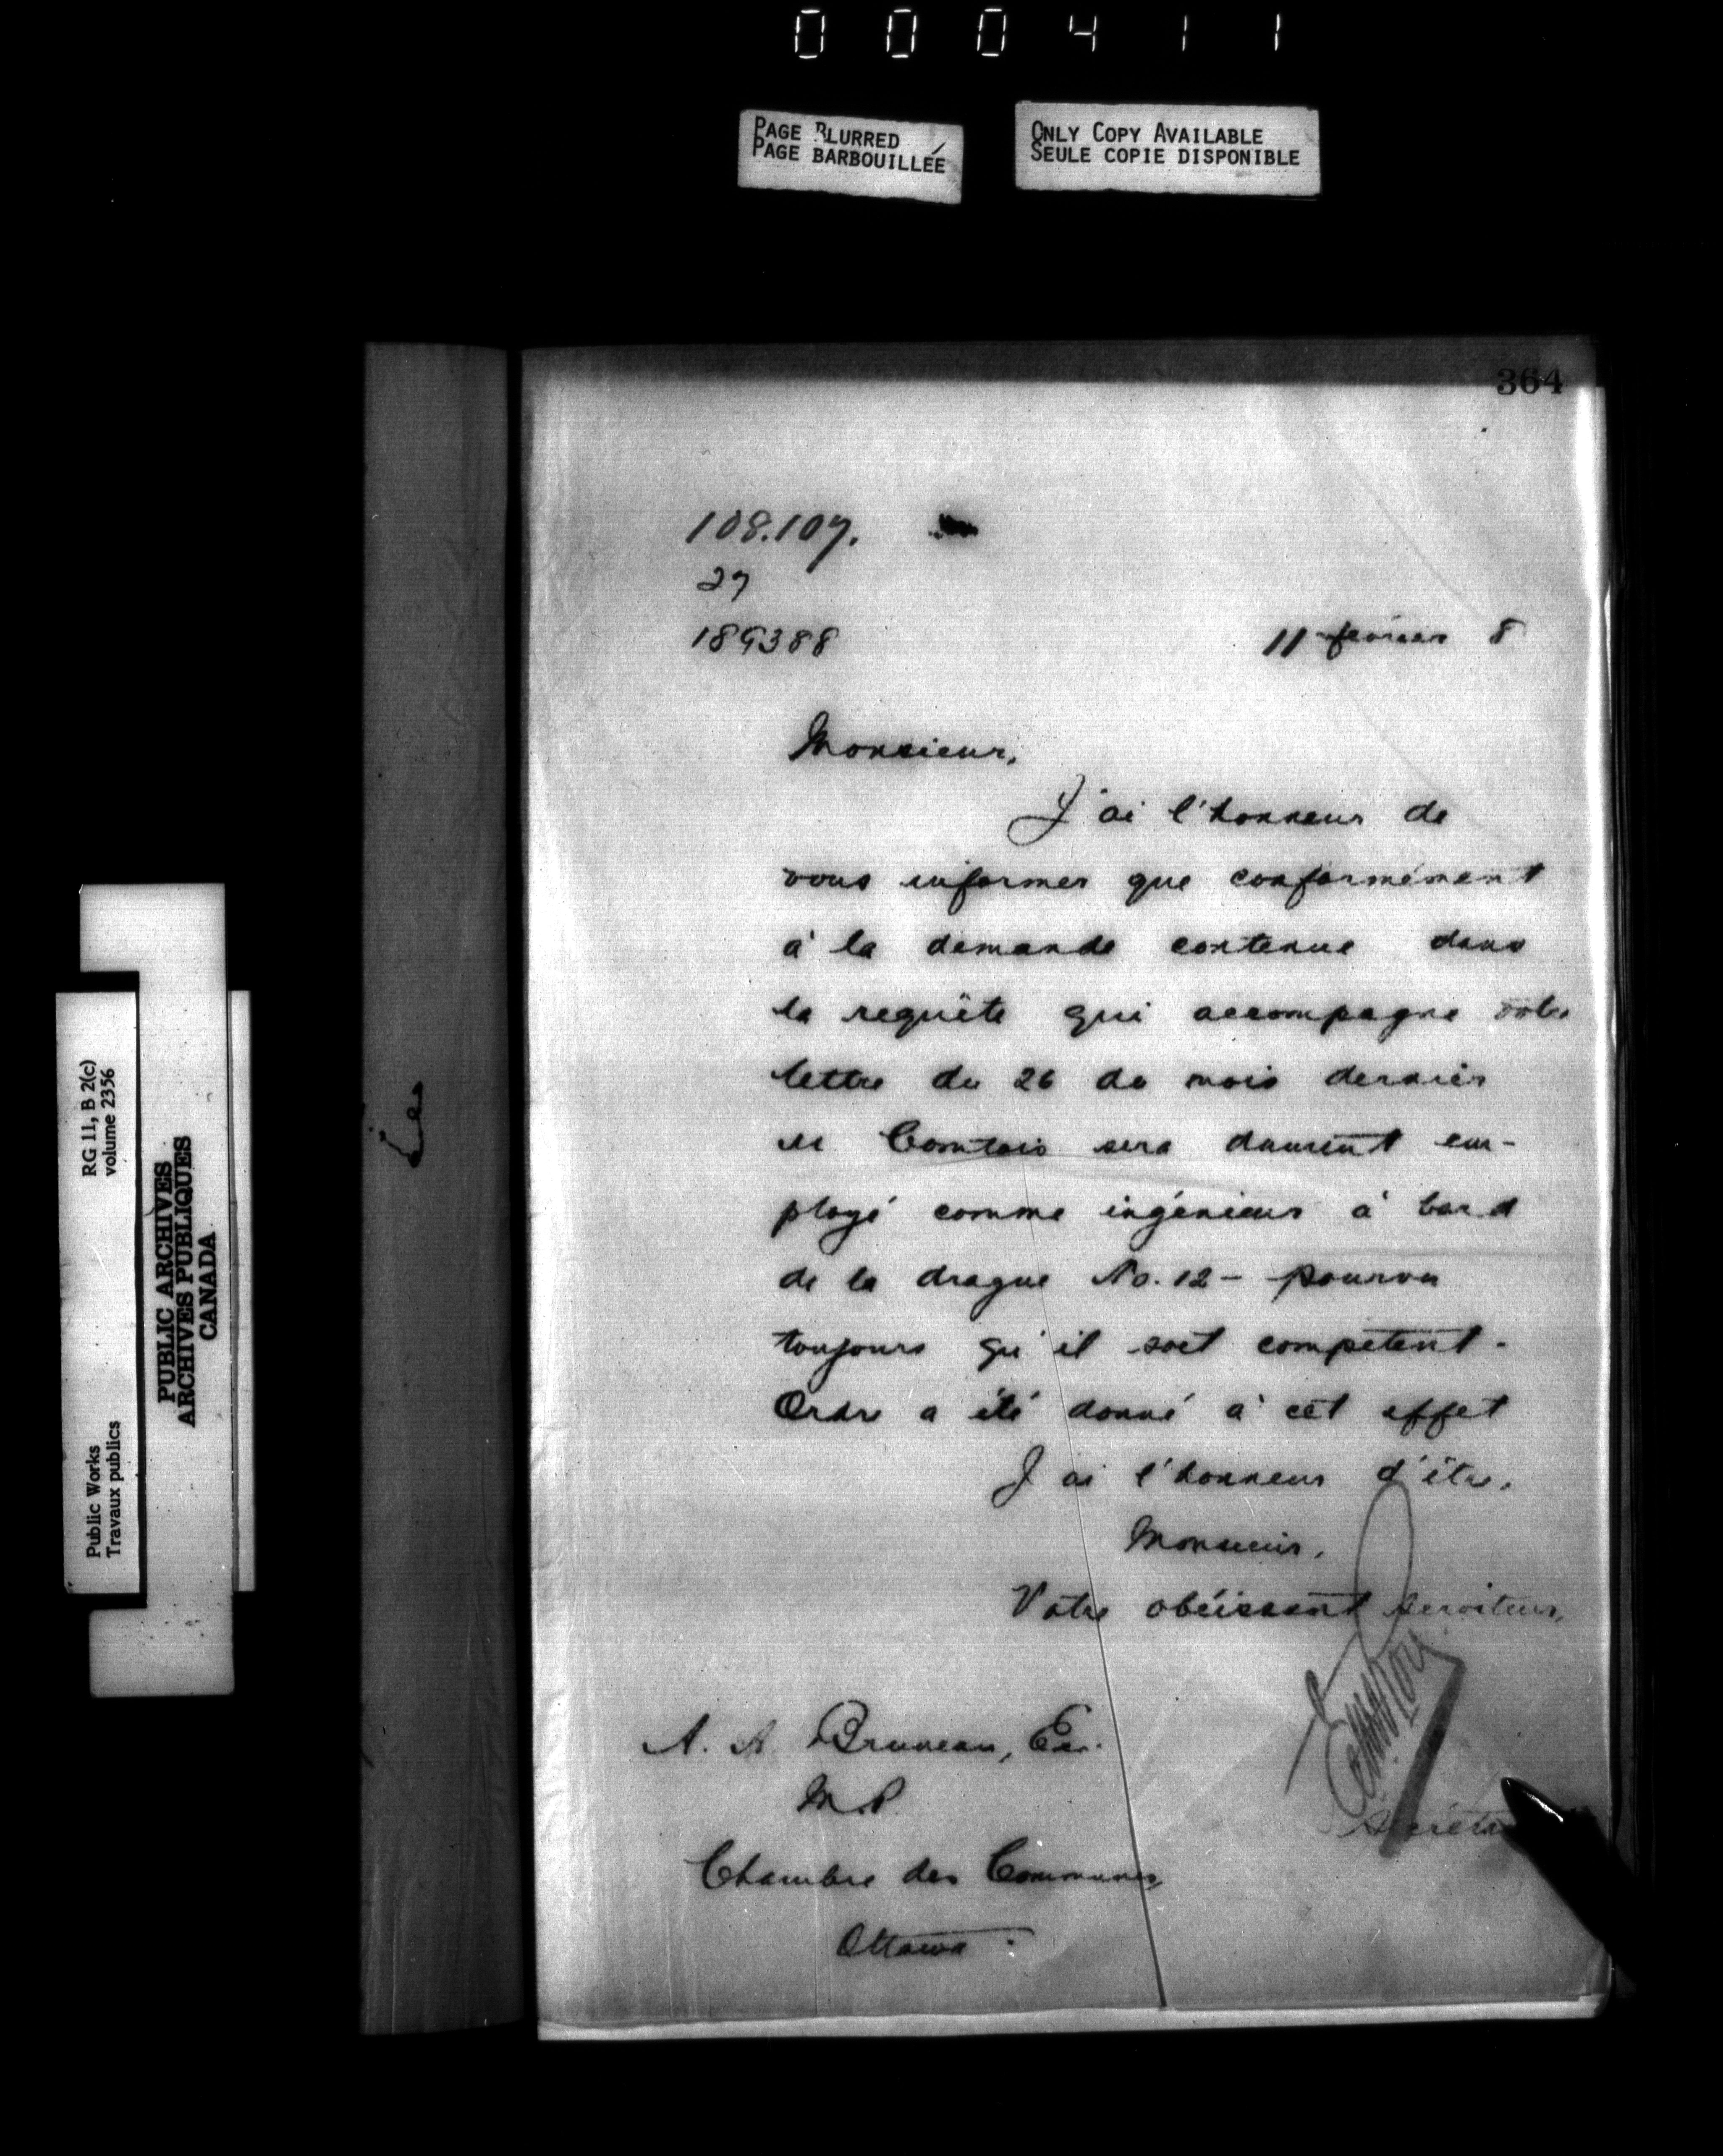 000411
PAGE BLURRED
PAGE BARBOUILLÉE
ONLY COPY AVAILABLE
SEULE COPIE DISPONIBLE
364
108.107.
27
189388
11 février 8
Monsieur,
J'ai l'honneur de
vous informer que conformément
à la demande contenue dans
la requête qui accompagne votre
lettre du 26 du mois dernier
M Comtois sera dument em-
ployé comme ingénieur à bord
de la drague No. 12 - pourvu
toujours qu'il soit competent.
Ordre a été donné à cet effet
J'ai l'honneur d'être,
Monsieur,
Votre obéissant serviteur,
A. A. Bruneau, Esr.
M.P.
Chambre des Communes,
Ottawa.
RG 11, B 2(c)
volume 2356
Public Works
Travaux publics
PUBLIC ARCHIVES
ARCHIVES PUBLIQUES
CANADA